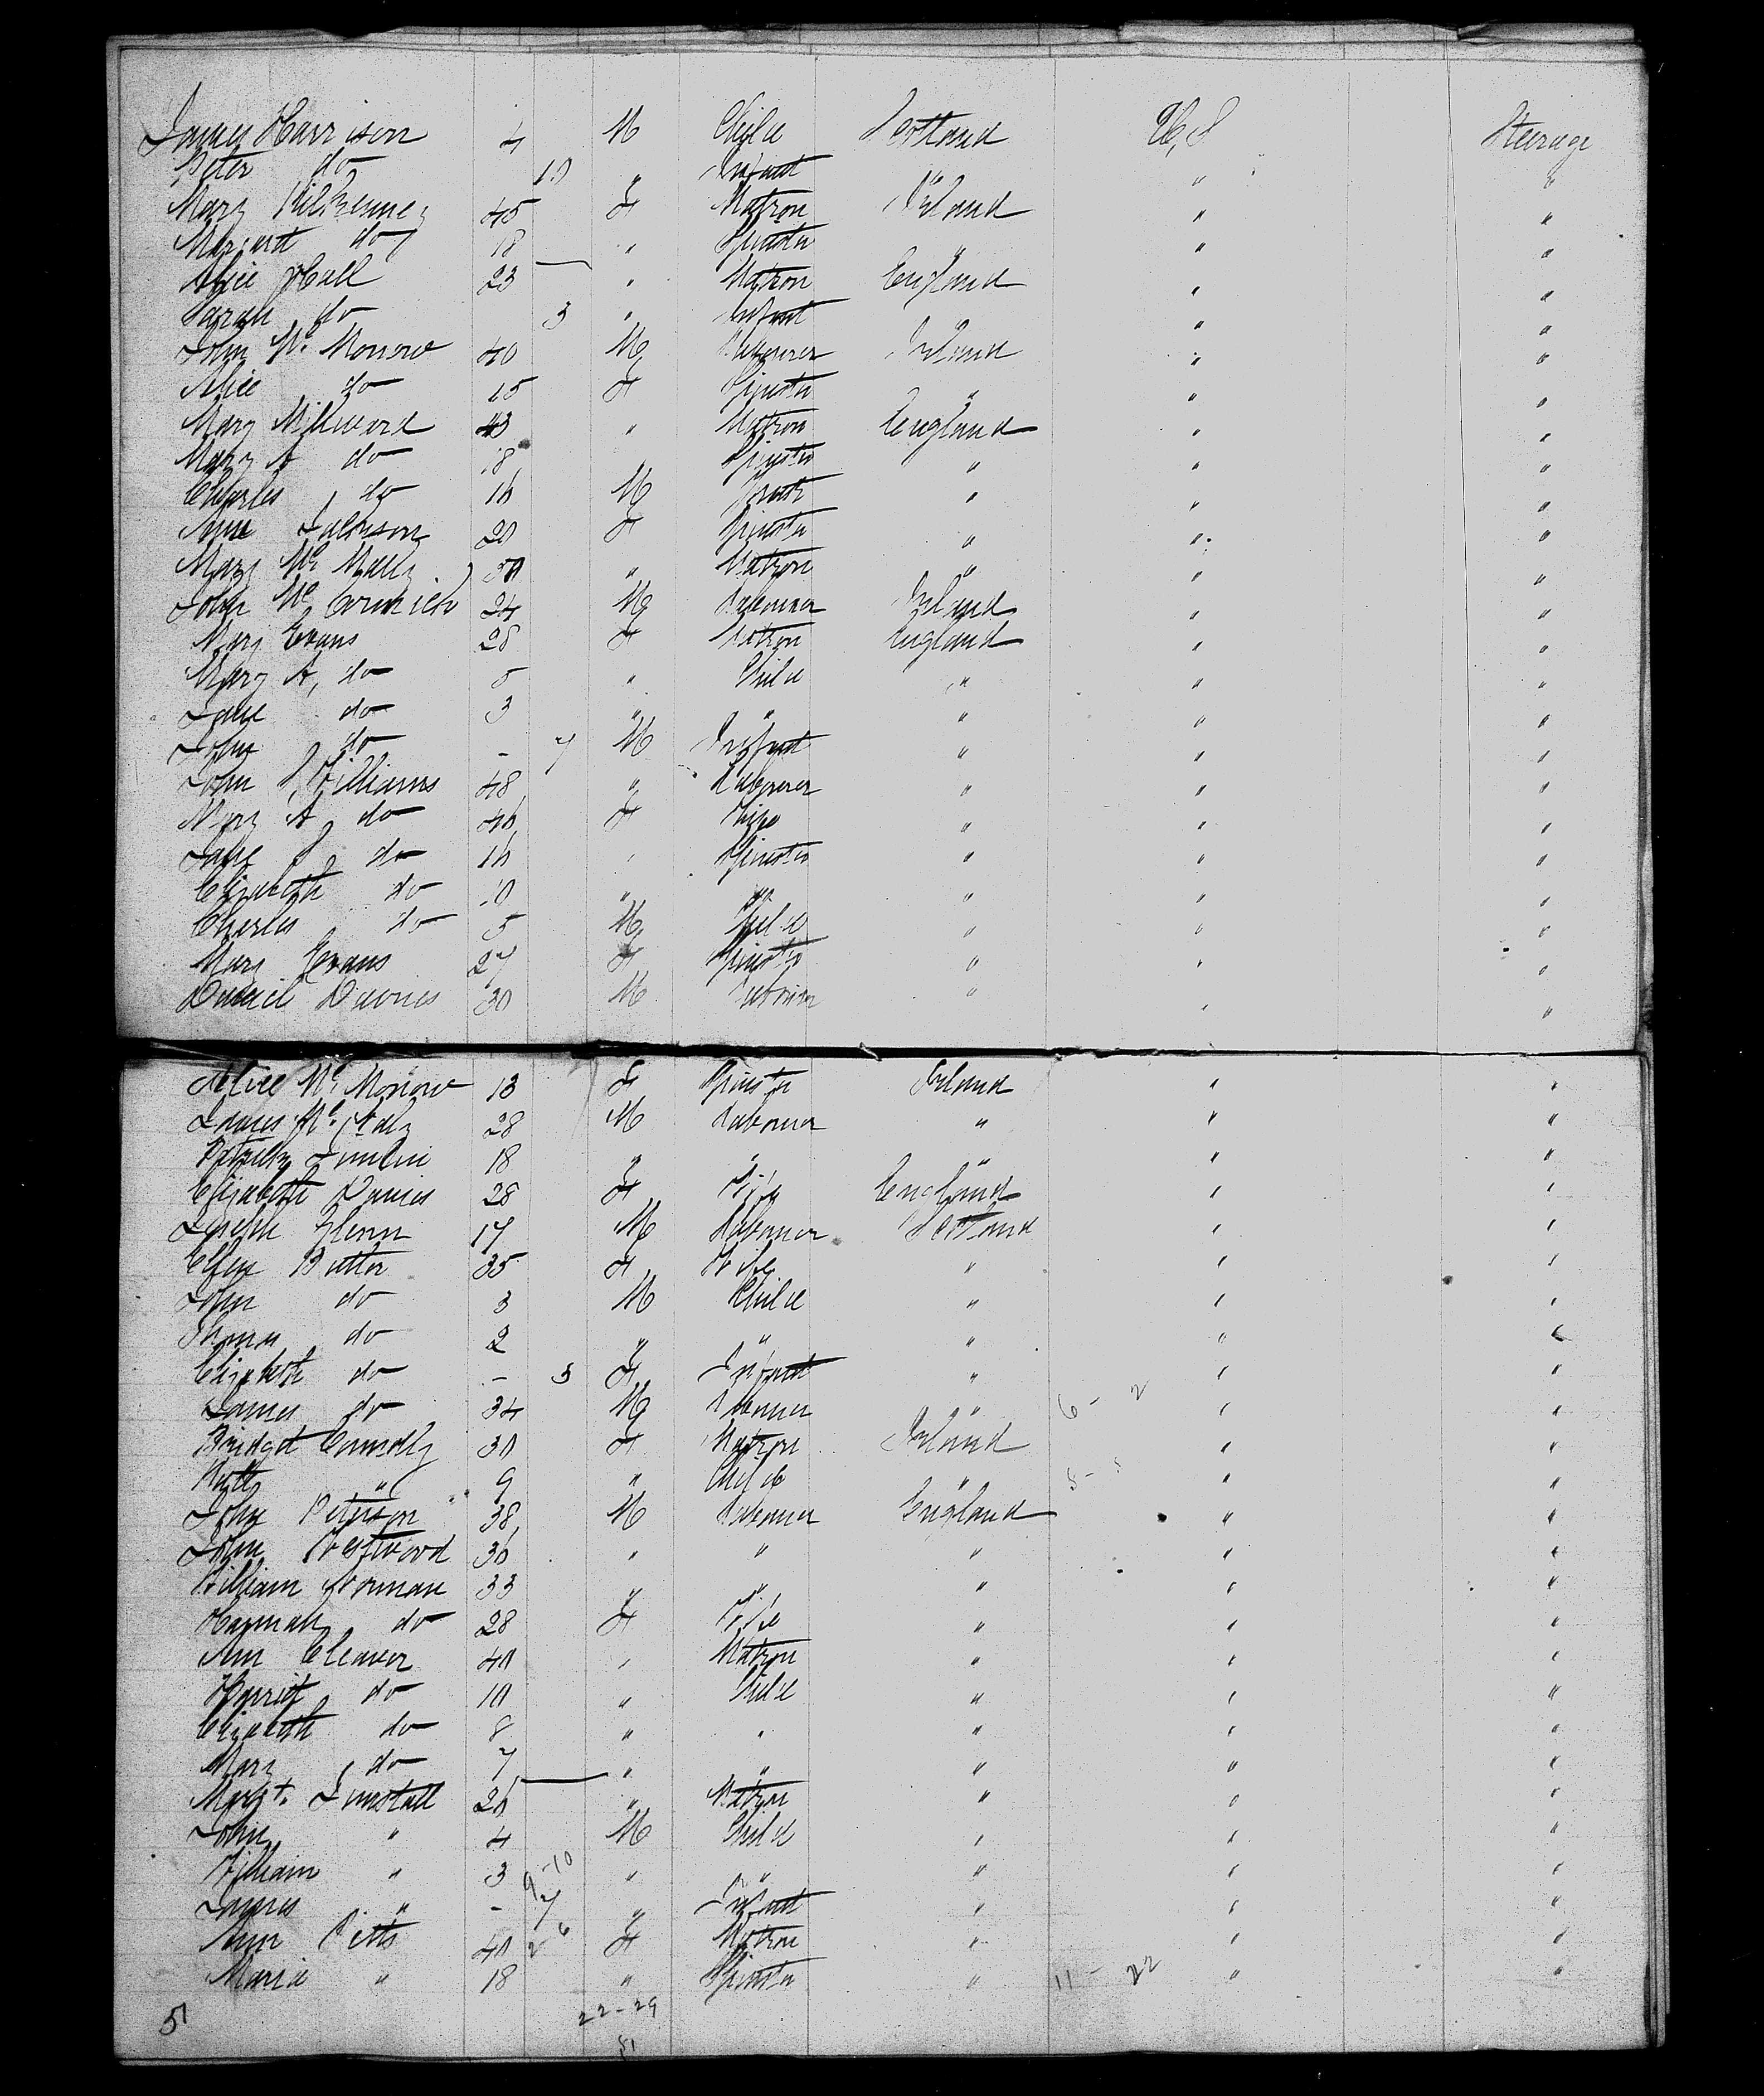 James Harrison 4 M Child Scotland U,S Steerage
Peter do 10 " Infant " " "
Mary Kilkenney 45 F Matron Ireland " "
Margart do 18 " Spinster " " "
Alice Hall 23 " Matron England " "
Sarah do 3 " Infant " " "
John Mc Morrow 40 M Labourer Ireland " "
Alice do 15 F Spinster " " "
Mary Millward 43 " Matron England " "
Mary A do 18 " Spinster " " "
Charles do 16 M " " "
Ann Jackson 20 F Spinster " " "
Mary Mc Nally 50 " Matron " " "
John Mc Cormick 24 M Labourer Ireland " "
Mary Evans 28 F Matron England " "
Mary A, do 5 " Child " " "
Jane do 3 " " " " "
John do - 7 M Infant " " "
John Williams 48 " Labourer " " "
Mary A do 46 F Wife " " "
Jane do 16 " Spinster " " "
Elizabeth do 10 " " " " "
Charles do 5 M Child " " "
Mary Evans 27 F Spinster " " "
Daniel Davies 30 M Labourer " " "
Alice Mc Morrow 13 F Spinster Ireland " "
James Mc 28 M Labourer " " "
18 " " " " "
Elizabeth Davies 28 F Wife England " "
Joseph Glenn 17 M Labourer Scotland " "
Ellen 35 F Wife " " "
John do 3 M Child " " "
Thomas do 2 " " " " "
Elizabeth do - 3 F Infant " " "
James do 34 M Labourer " 6 - 2 " "
Bridget Connolly 30 F Matron Ireland " "
" 9 " Child " " "
John Peterson 38 M Labourer England " "
John Westwood 36 " " " " "
William Norman 33 " " " " "
Hannah do 28 F Wife " " "
Ann Cleaver 40 " Matron " " "
Harriet do 10 " Child " " "
Elizabeth do 8 " " " " "
Mary do 7 " " " " "
Margt. Tunstall 26 " Matron " " "
John " 4 M Child " " "
William " 3 9-10 " " " " "
James " - 7 " Infant " " "
Ann Pitts 40 2 6 F Matron " " "
Maria " 18 " Spinster " 11 - 22 " "
51 22-29
51